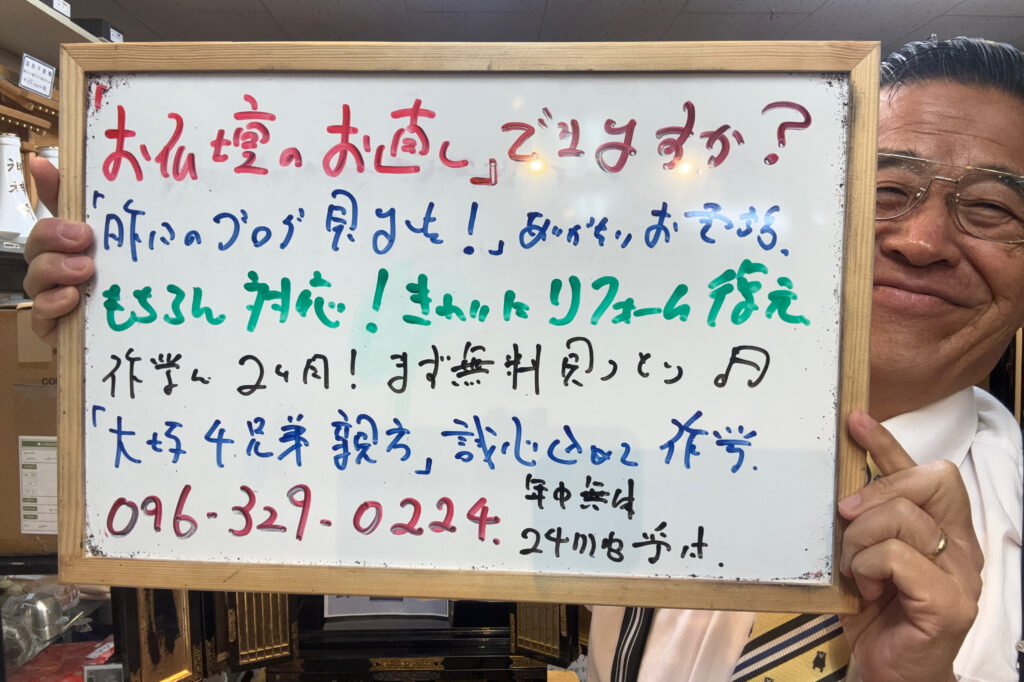 「お仏壇のお直し」できますか?
「昨日のブログ見ました!」ありがたいお電話.
もちろん対応!きれいにリフォーム復元
作業に2ヶ月!まず無料見つもり
「大切 4兄弟親方」誠心込めて作業.
096-329-0224.
年中無休
24h電受付.